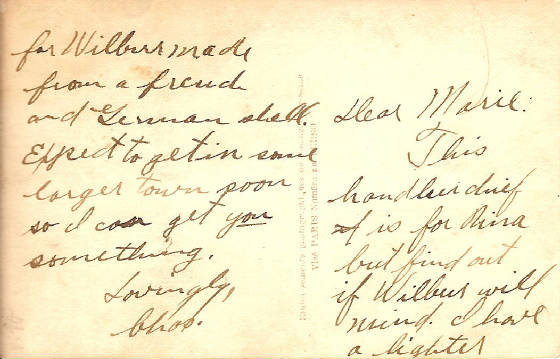 Dear Marie:
This
handkerchief
is for Nina
but find out
if Wilbur will
mind. I have
a lighter
for Wilbur made
from a french
and German shell.
Expect to get in some
larger town soon
so I can get you
something.
Lovingly,
Chas.
VISÉ PARIS